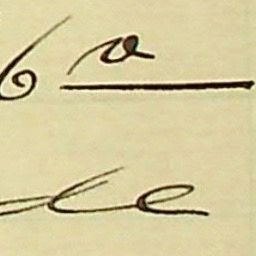 6 a
de